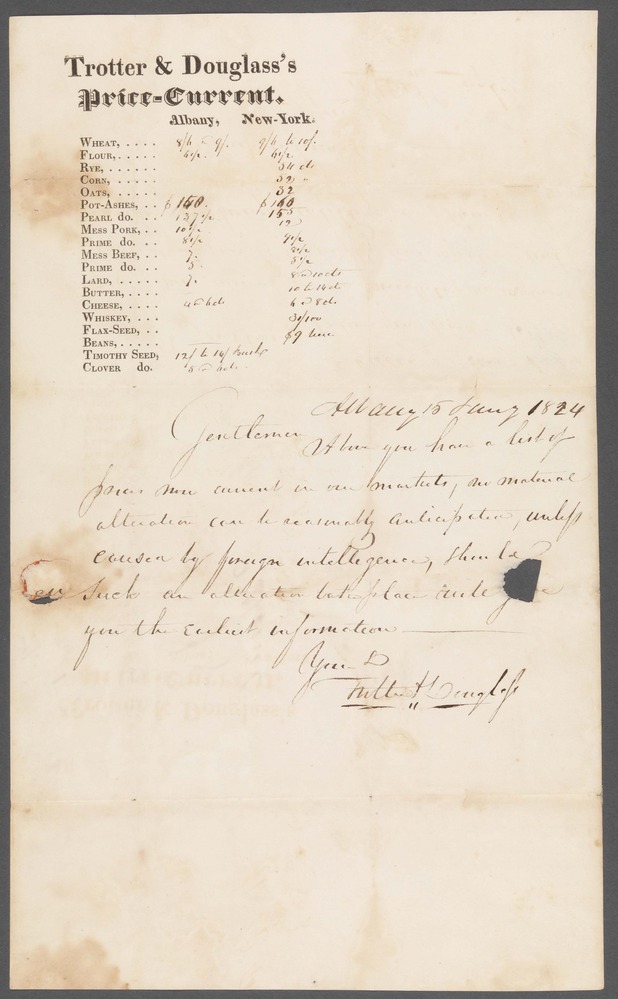 Trotter & Douglass's
Price-Current.
Albany, New-York.
Wheat, . . . . 8/6 @ 9/. 9/6 to 10/.
Flour, . . . . 6½
Rye, . . . . . . 54 cts
Corn, . . . . . 32 "
Oats, . . . . . 32
Pot-Ashes, . . $ 140. $ 150
Pearl do. . . 137½ 155
Mess Pork, . . 10½ 12
Prime do. . . 8½ 9½
Mess Beef, . . 7.
Prime do. . . 5.
Lard, . . . . . 7. 8 @ 10 cts
Butter, . . . . 10 to 14 cts
Cheese, . . . . 4 @ 6 cts 6 @ 8 cts
Whiskey, . . . 31/100
Flax-Seed, . .
Beans, . . . . . $9
Timothy Seed, 12/ to 14/ bush
Clover do.
Albany 15 Jany 1824
Gentlemen
Above you have a list of
prices now current in our markets, no material
alteration can be reasonably anticipated, unless
caused by foreign intelligence, should
such an alteration take place
you the earliest information
Your
Trotter & Douglass